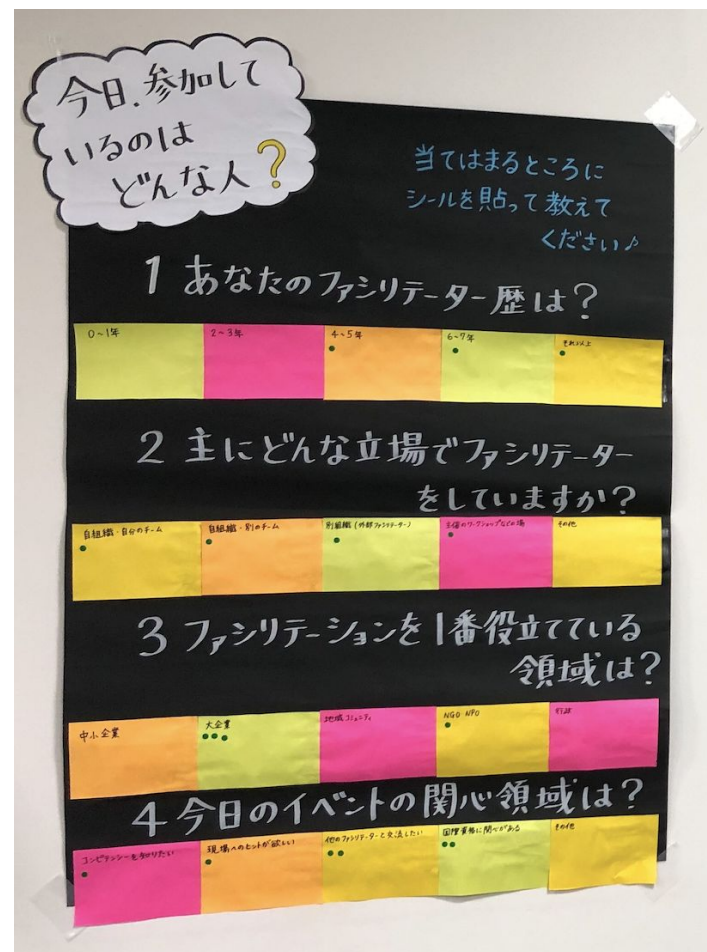 今日、参加して
いるのは
どんな人?
当てはまるところに
シールを貼って教えて
ください♪
1 あなたのファシリテーター歴は?
0~1年
2~3年
4~5年
6~7年
それ以上
2 主にどんな立場でファシリテーター
をしていますか?
自組織・自分のチーム
自組織・別のチーム
別組織(外部ファシリテーター)
主催のワークショップなどの場
その他
3 ファシリテーションを1番役立てている
領域は?
中小企業
大企業
地域コミュニティ
NGO NPO
行政
4 今日のイベントの関心領域は?
コンピテンシーを知りたい
現場へのヒントが欲しい
他のファシリテーターと交流したい
国際資格に関心がある
その他